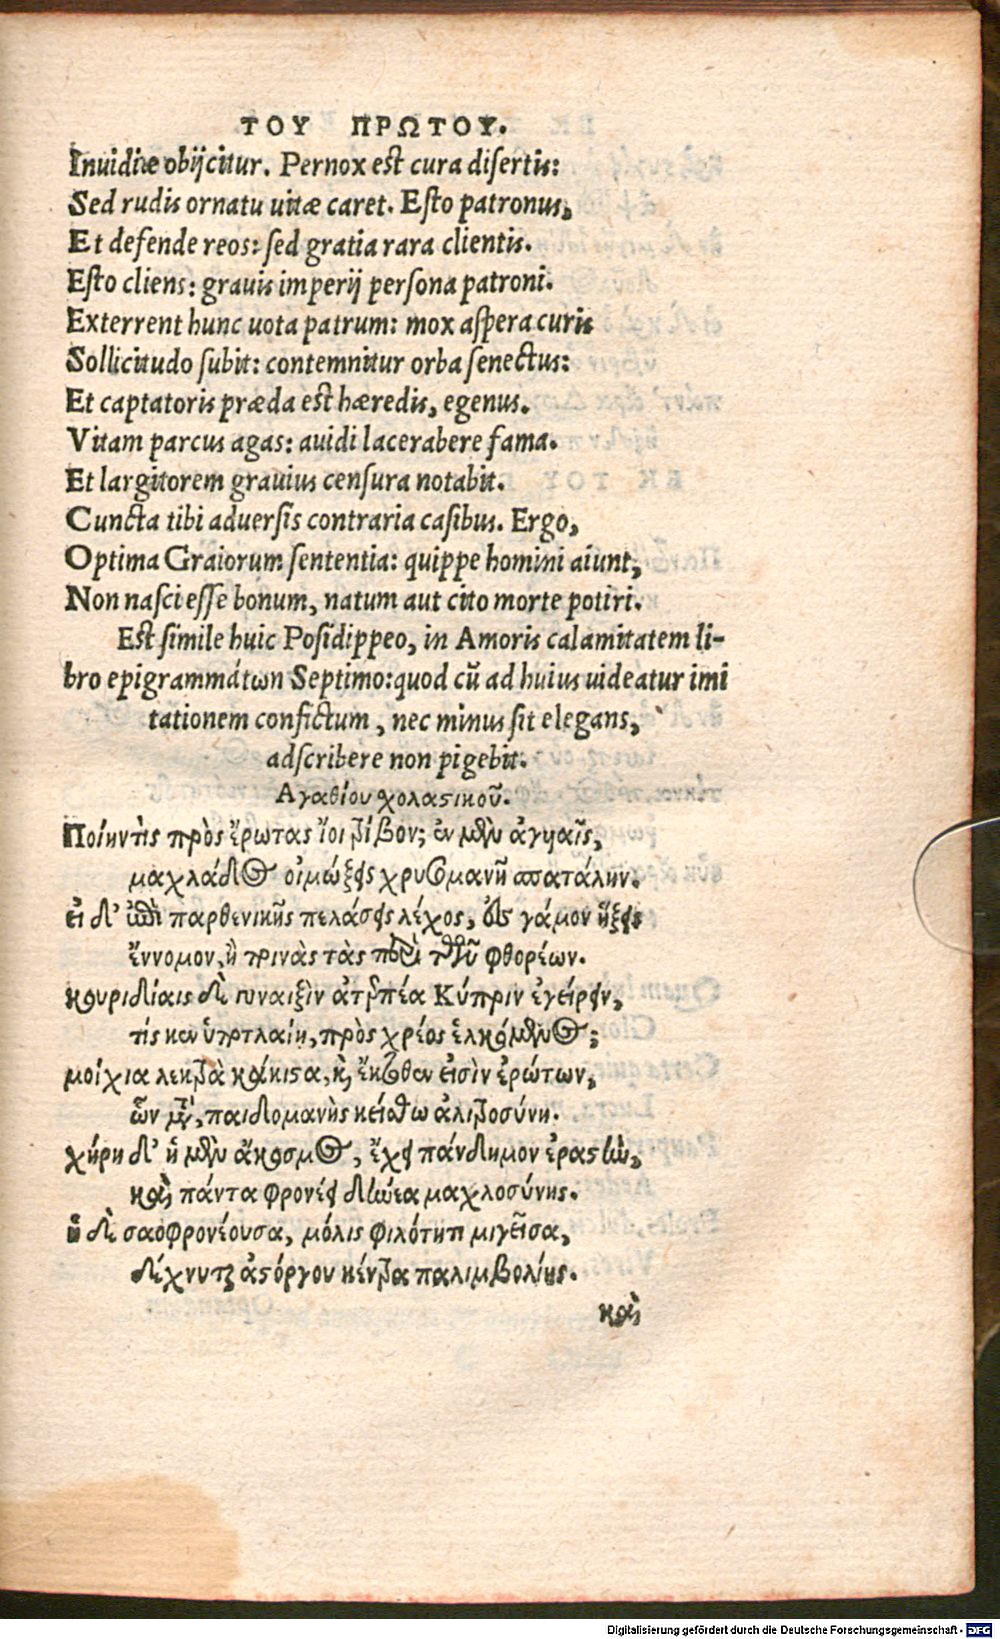 ΤΟΥ ΠΡΩΤΟΥ.
Inuidiæ obijcitur. Pernox est cura disertis:
Sed rudis ornatu uitæ caret. Esto patronus,
Et defende reos: sed gratia rara clientis.
Esto cliens: grauis imperij persona patroni.
Exterrent hunc uota patrum: mox aspera curis
Sollicitudo subit: contemnitur orba senectus:
Et captatoris præda est hæredis, egenus.
Vitam parcus agas: auidi lacerabere fama.
Et largitorem grauius censura notabit.
Cuncta tibi aduersis contraria casibus. Ergo,
Optima Graiorum sententia: quippe homini aiunt,
Non nasci esse bonum, natum aut cito morte potiri.
Est simile huic Posidippeo, in Amoris calamitatem li-
bro epigrammátωn Septimo: quod cũ ad huius uideatur imi
tationem confictum, nec minus sit elegans,
adscribere non pigebit.
Αγαθίου χολαϛικοῦ.
Ποίην τὶς πρὸς ἔρωτας ἴοι τρίβον; ἐν μὲν ἀγυιαῖς,
μαχλάδος οἰμώξεις χρυσομανῆ σπατάλην.
εἰ δ' ἐπὶ παρθενικῆς πελάσεις λέχος, ἐς γάμον ἥξεις
ἔννομον, ἢ ποινὰς τὰς περὶ τῶν φθορέων.
κουριδίαις δὲ γυναιξὶν ἀτερπέα Κύπριν ἐγείρειν,
τίς κεν ὑποτλαίη, πρὸς χρέος ἑλκόμενος;
μοίχια λεκτρὰ κάκιϛα, καὶ ἔκτοθεν εἰσὶν ἐρώτων,
ὧν μέτα, παιδομανὴς κείσθω ἀλιτροσύνη.
χήρη δ' ἡ μὲν ἄκοσμος, ἔχει πάνδημον ἐραϛὼ,
καὶ πάντα φρονέει δήνεα μαχλοσύνης.
ἡ δὲ σαοφρονέουσα, μόλις φιλότητι μιγεῖσα,
δέχνυται ἀϛόργου κέντρα παλιμβολίης.
καὶ
Digitalisierung gefördert durch die Deutsche Forschungsgemeinschaft - DFG